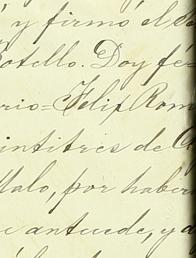 y firmó el
otello. Doy fe
rio=Felix Rom
intitres de
Malo, por haber
e antecede, y a